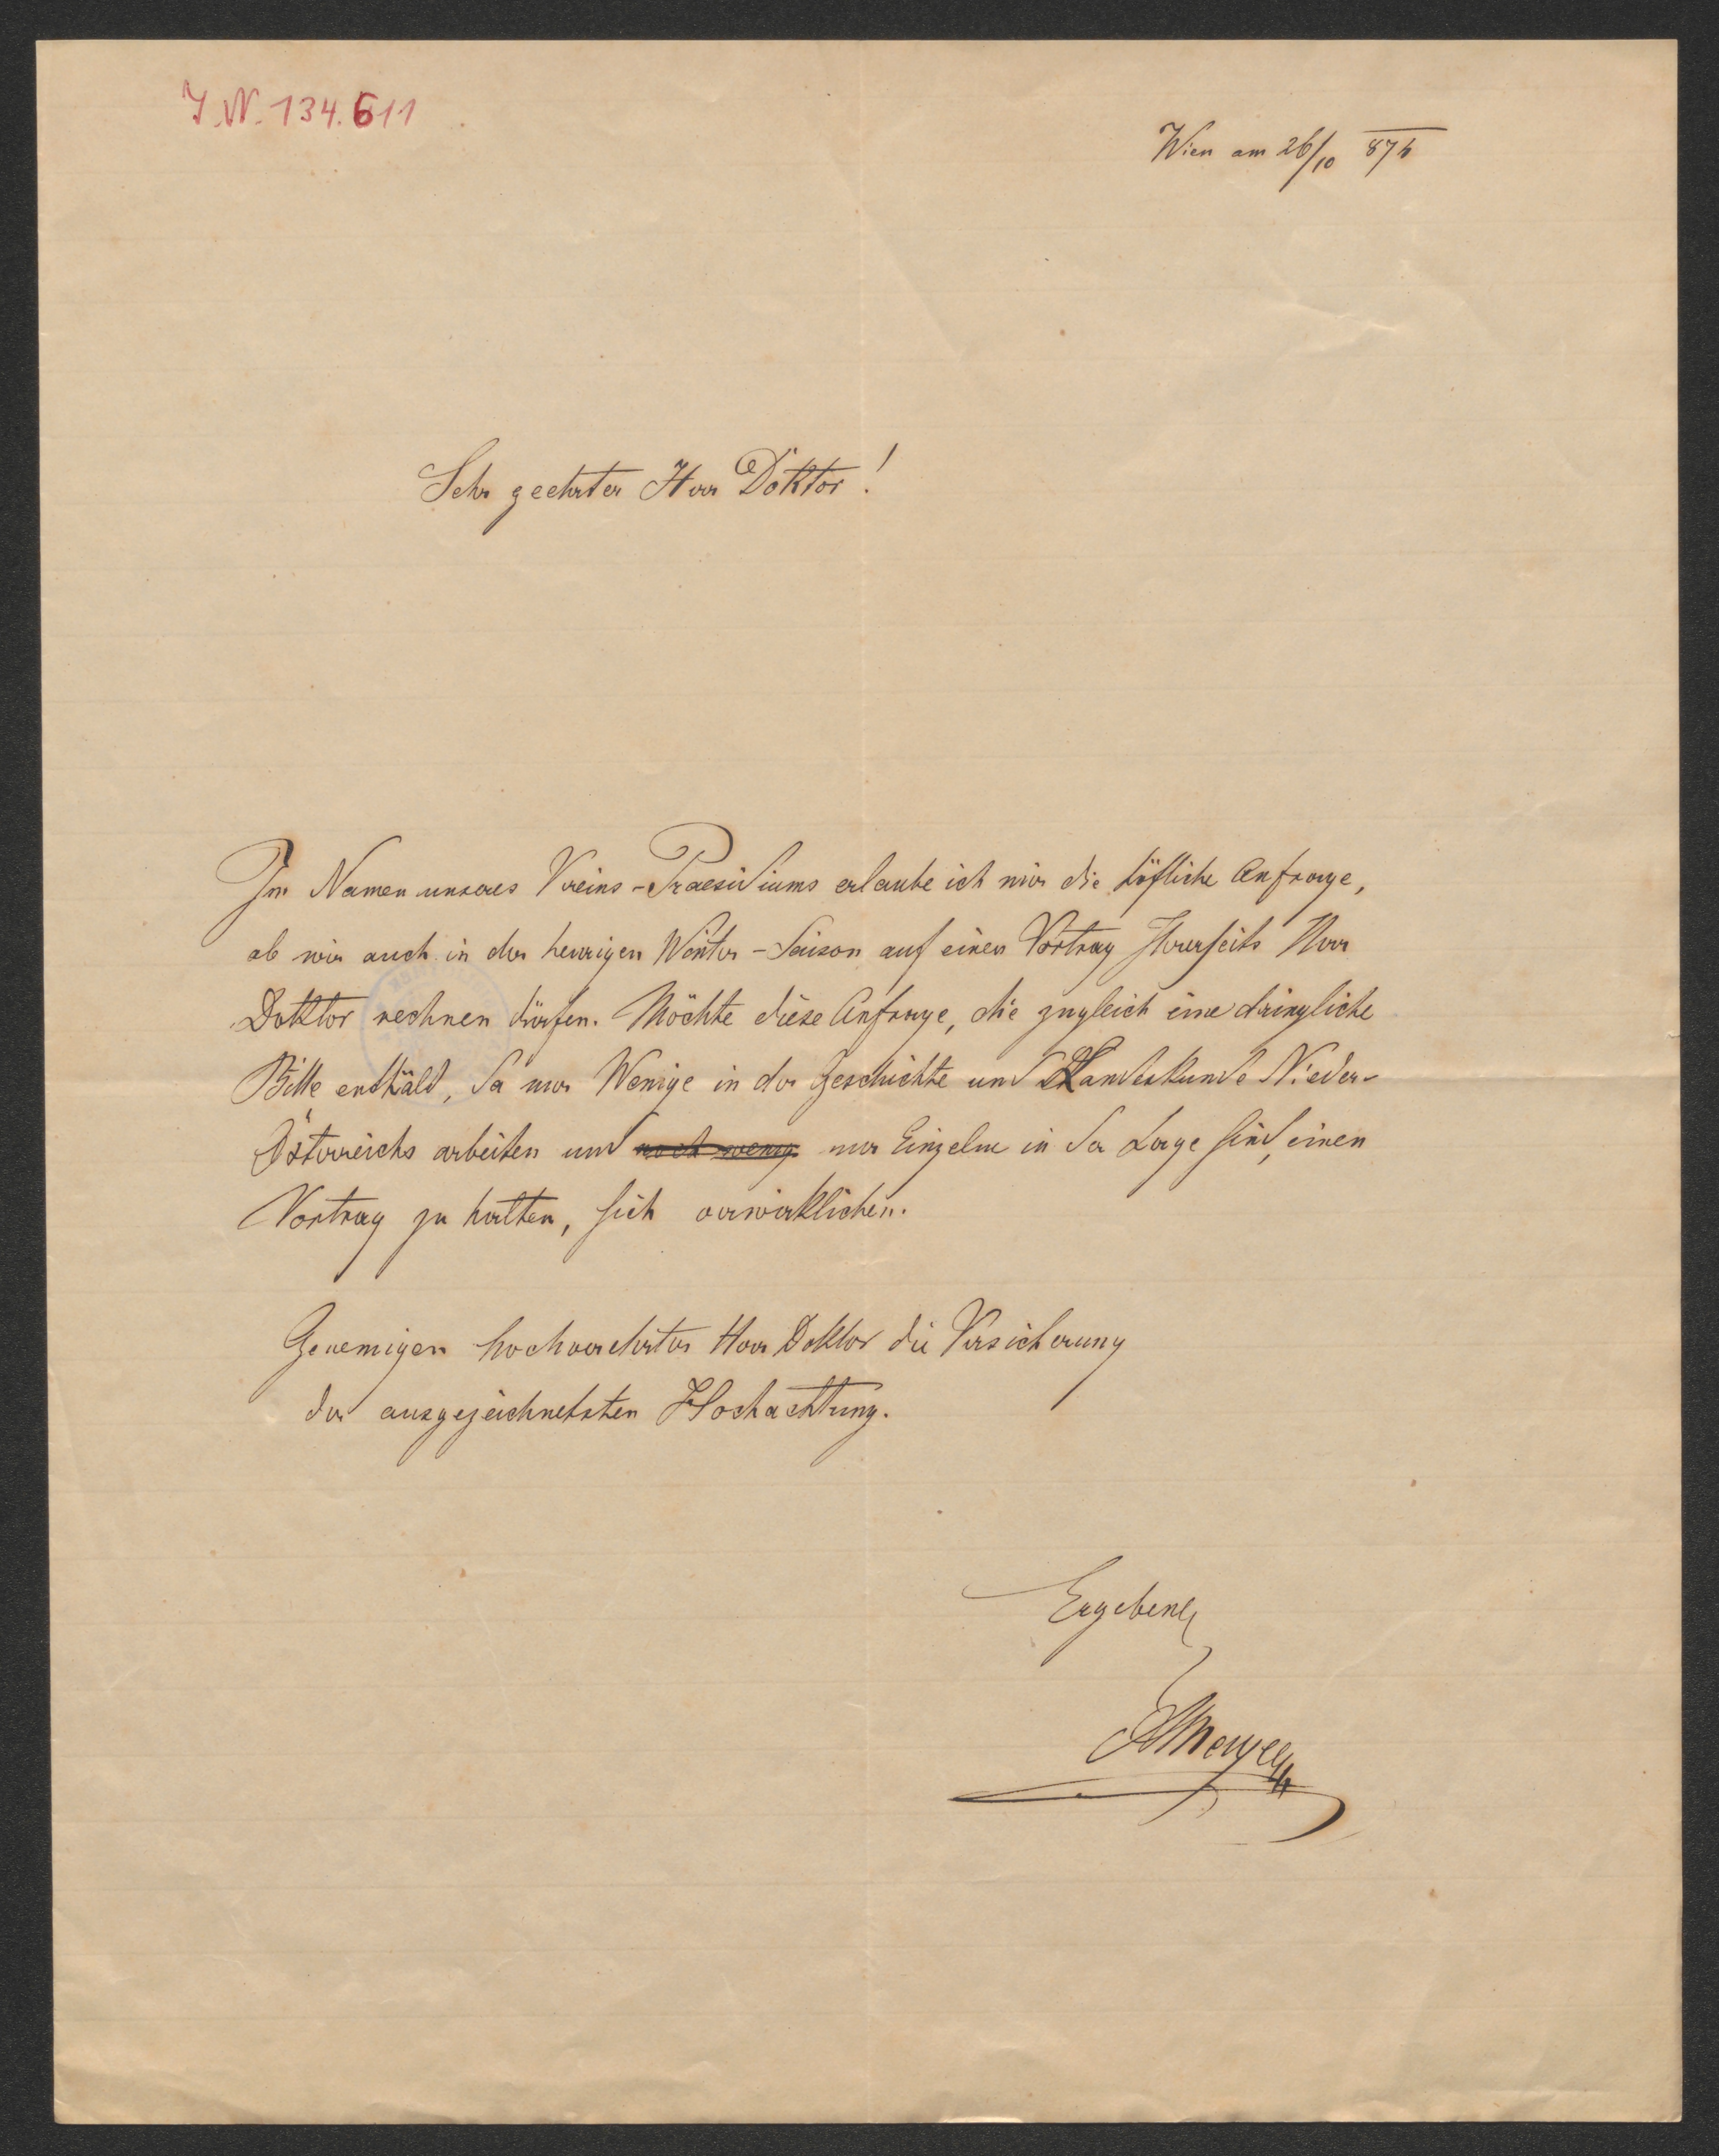 I.N. 134.611
Wien am 26/10 874
Sehr geehrter Herr Doktor!
Im Namen unseres Vereins-Praesidiums erlaube ich mir die höfliche Anfrage,
ob wir auch in der heurigen Winter-Saison auf einen Vortrag Ihrerseits Herr
Doktor rechnen dürfen. Möchte diese Anfrage, die zugleich eine dringliche
Bitte enthält, da nur Wenige in der Geschichte und Landeskunde Nieder-
Österreichs arbeiten und noch wenig nur Einzelne in der Lage sind, einen
Vortrag zu halten, sich verwirklichen.
Genemigen hochverehrter Herr Doktor die Versicherung
der ausgezeichnetsten Hochachtung.
Ergebenst